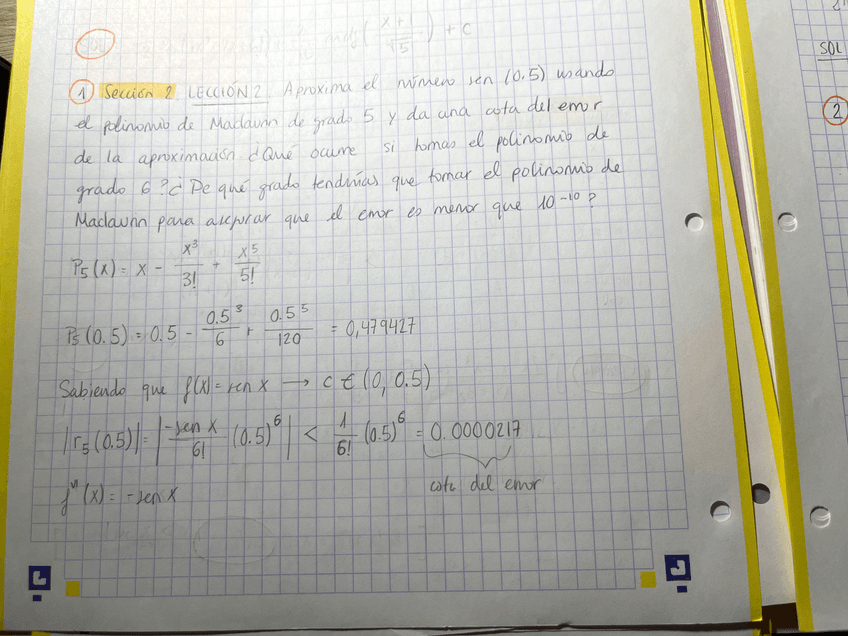 SOL
( x+1 / √5 ) + C
① Sección 2 LECCIÓN 2 Aproxima el número sen (0.5) usando
el polinomio de Maclaurin de grado 5 y da una cota del error
de la aproximación ¿Qué ocurre si tomas el polinomio de
grado 6?¿ De qué grado tendrías que tomar el polinomio de
Maclaurin para asegurar que el error es menor que 10^-10?
P5(x) = x - x^3/3! + x^5/5!
P5(0.5) = 0.5 - 0.5^3/6 + 0.5^5/120 = 0,479427
Sabiendo que f(x) = sen x → c ∈ (0, 0.5)
|r5(0.5)| = |-sen x/6! (0.5)^6| < 1/6! (0.5)^6 = 0.0000217
cota del error
f^n(x) = -sen x
SOL
②